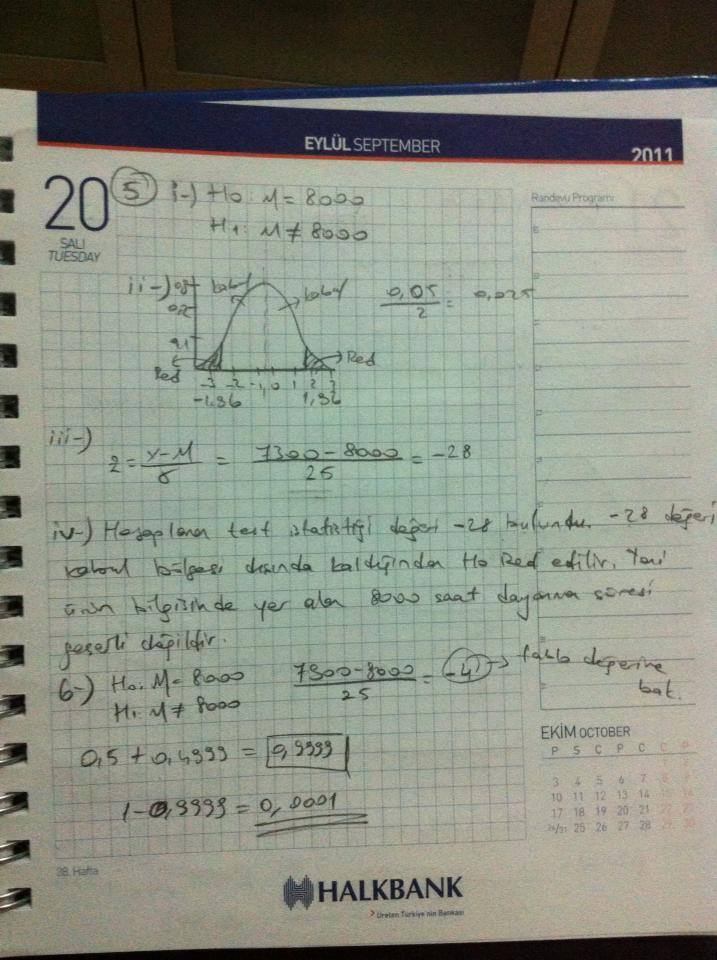 EYLÜL SEPTEMBER
2011
20
SALI
TUESDAY
Randevu Programı
5 i-) H0: M = 8000
H1: M ≠ 8000
ii-) Kabul Kabul 0,05/2 = 0,025
Red Red
-3 -2 -1 0 1 2 3
-1,96 1,96
iii-) z = (x-M)/σ = (7300-8000)/25 = -28
iv-) Hesaplanan test istatistiği değeri -28 bulundu. -28 değeri
kabul bölgesi dışında kaldığından Ho Red edilir. Yani
ürün bilgisinde yer alan 8000 saat dayanma süresi
geçerli değildir.
6-) H0: M = 8000 (7900-8000)/25 = -4 → tablo değerine
bak.
H1: M ≠ 8000
0,5 + 0,4999 = 0,9999
1-0,9999 = 0,0001
EKİM OCTOBER
P S Ç P C C P
3 4 5 6 7 8 9
10 11 12 13 14 15 16
17 18 19 20 21 22 23
24/31 25 26 27 28 29 30
38. Hafta
HALKBANK
Üreten Türkiye'nin Bankası